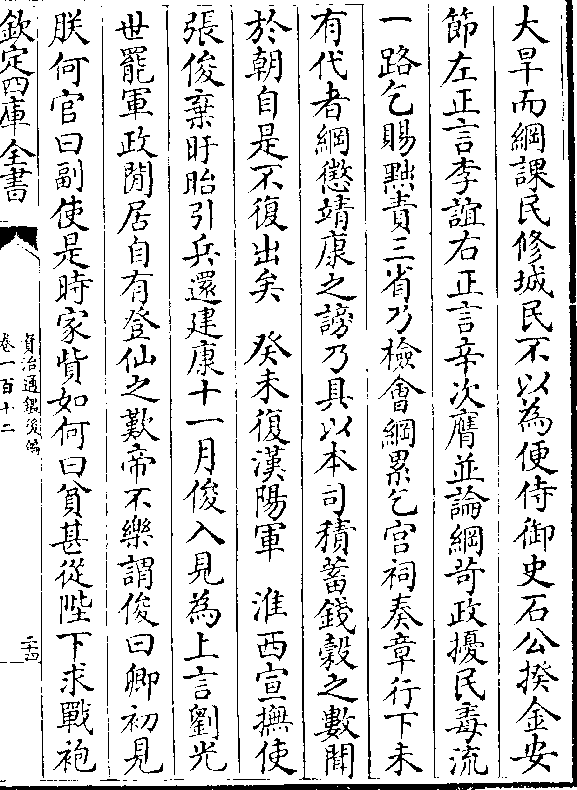 大旱而綱課民修城民不以為便侍御史石公揆金安
節左正言李誼右正言辛次膺並論綱苛政擾民毒流
一路乞賜黜責三省乃檢會綱累乞宫祠奏章行下未
有代者綱懲靖康之謗乃具以本司積蓄錢穀之數聞
於朝自是不復出矣　癸未復漢陽軍　淮西宣撫使
張俊棄盱眙引兵還建康十一月俊入見為上言劉光
世罷軍政閒居自有登仙之歎帝不樂謂俊曰卿初見
朕何官曰副使是時家貲如何曰貧甚從陛下求戰袍
欽定四庫全書
資治通鑑後編
卷一百十二
二十四